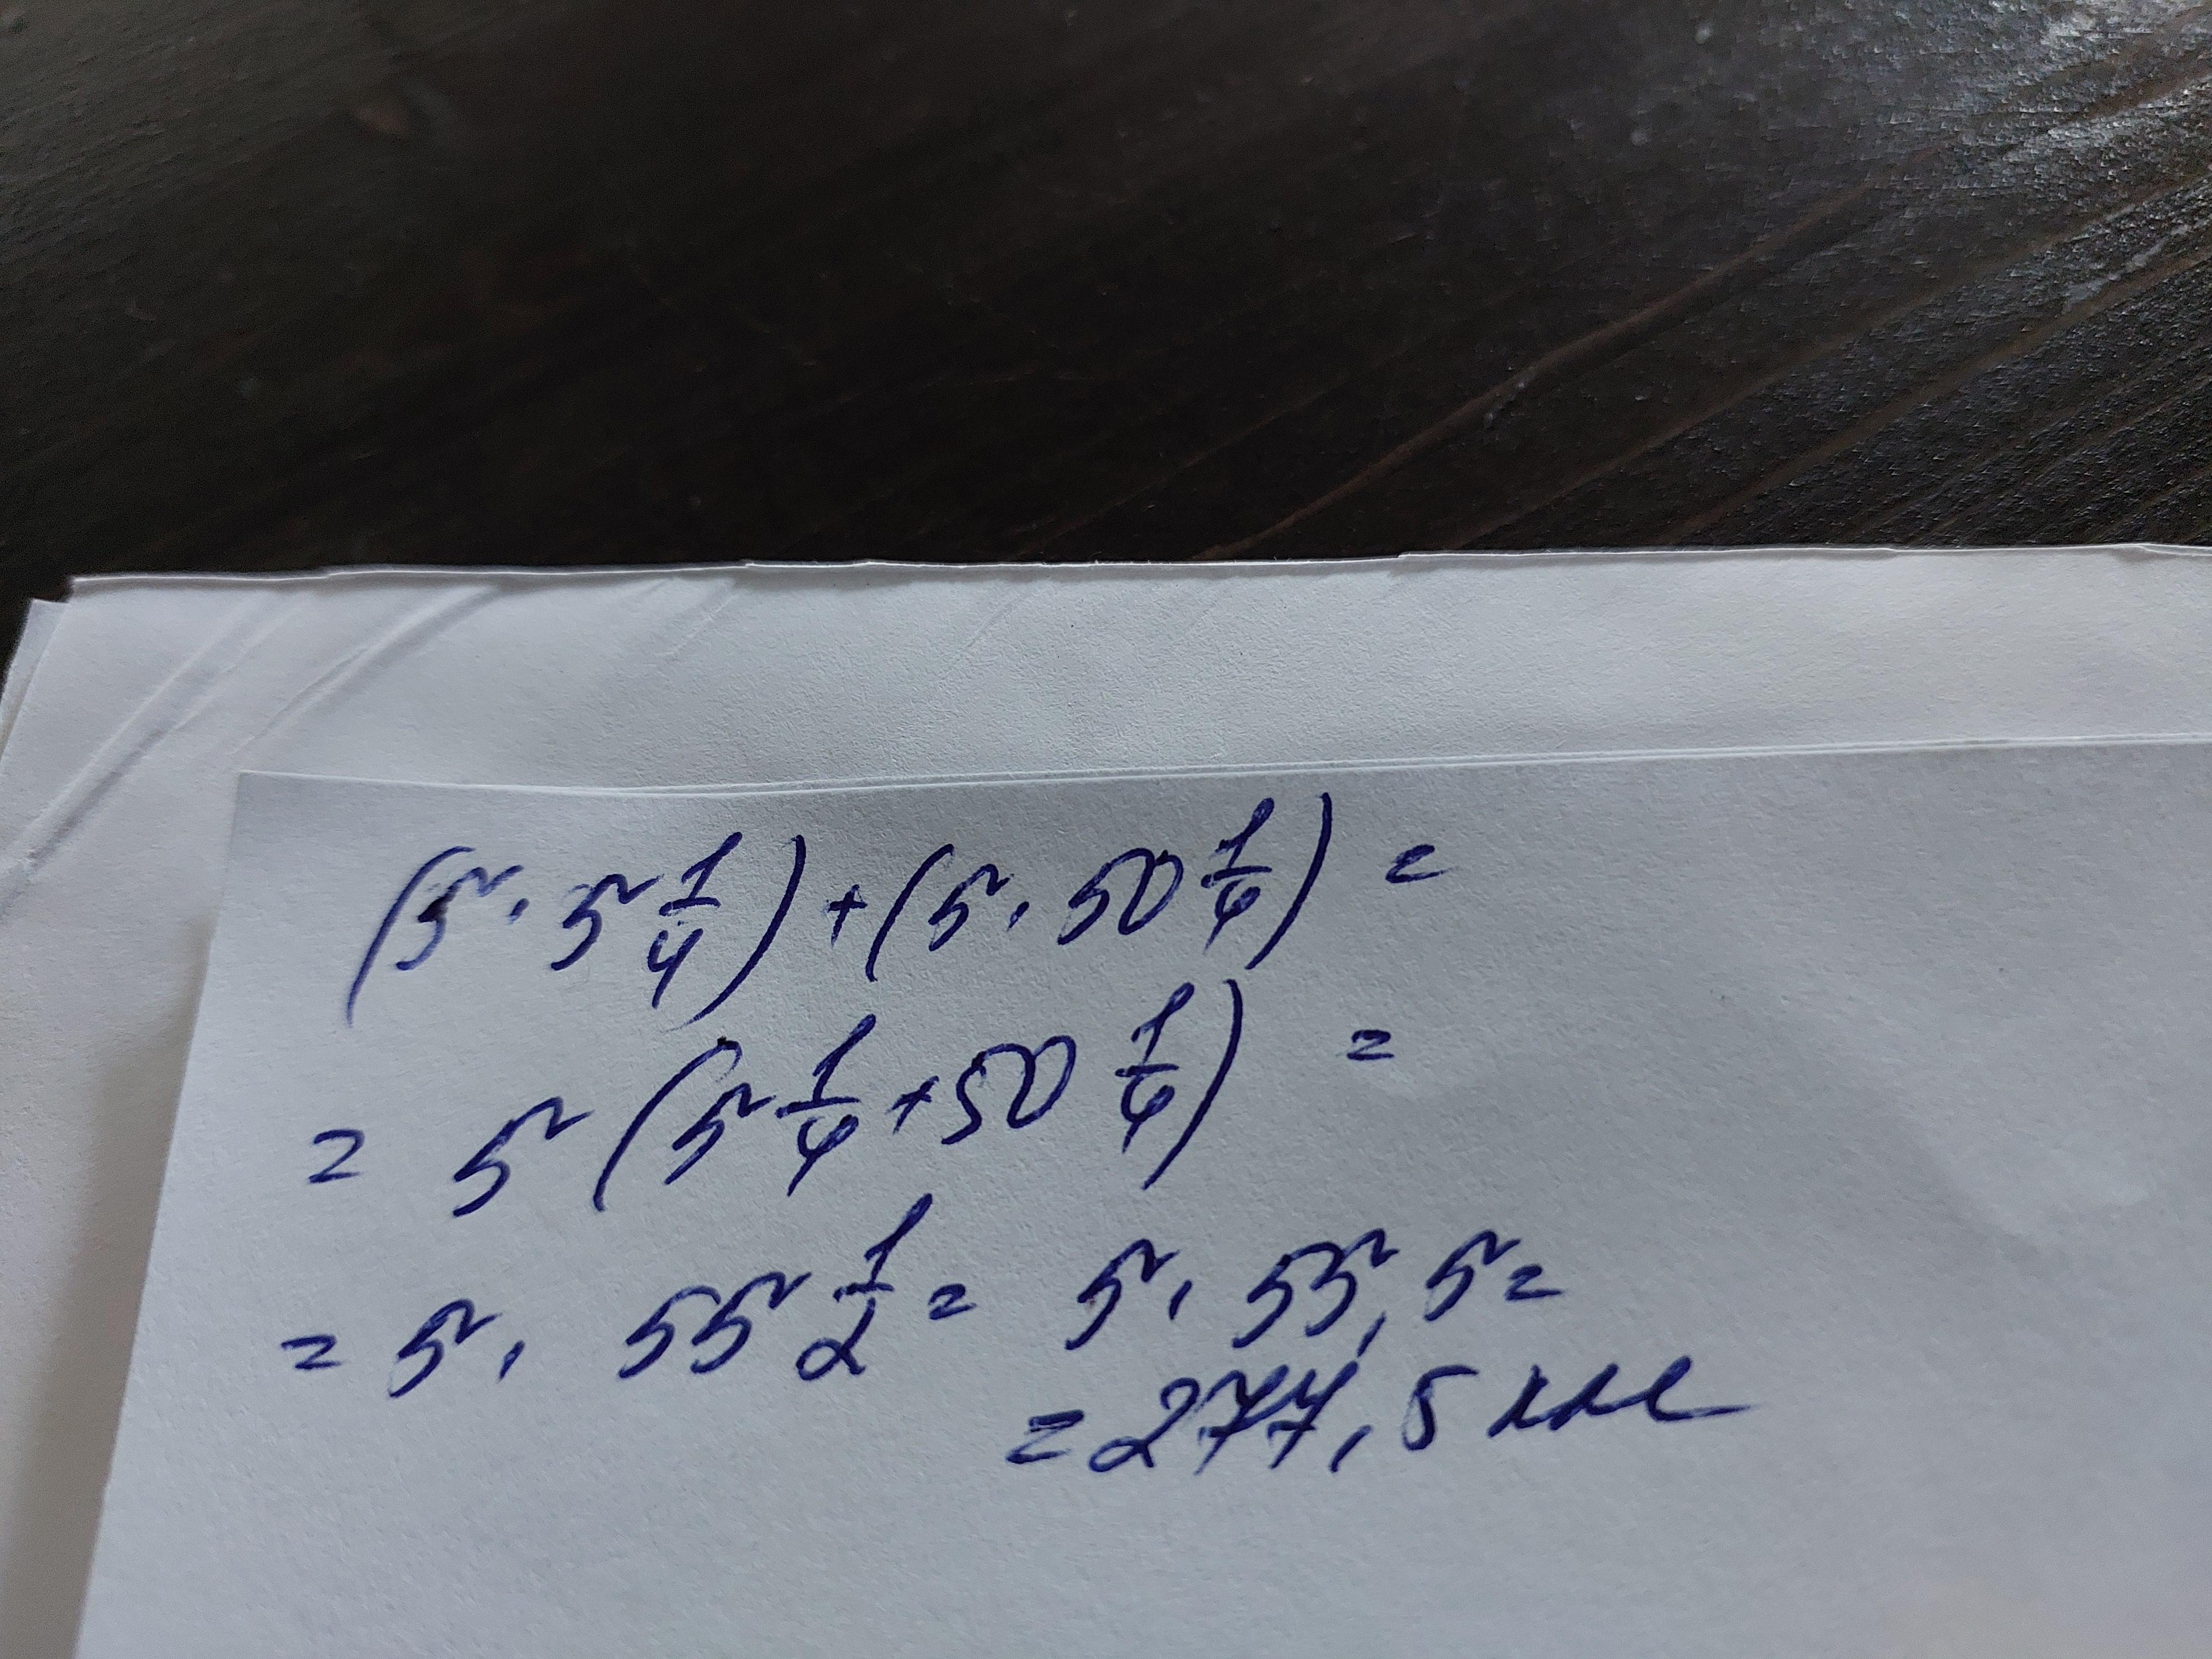 (5 · 5 1/4) + (5 · 50 1/4) =
= 5 (5 1/4 + 50 1/4) =
= 5 · 55 1/2 = 5 · 55,5 =
= 277,5 км